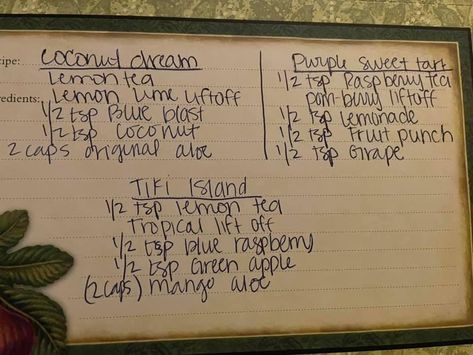 cipe:
Coconut dream
Lemon tea
redients: Lemon Lime liftoff
1/2 tsp Blue blast
1/2 tsp coconut
2 caps original aloe
Purple sweet tart
1/2 tsp Raspberry tea
pom-berry liftoff
1/2 tsp Lemonade
1/2 tsp Fruit punch
1/2 tsp Grape
Tiki Island
1/2 tsp lemon tea
Tropical lift off
1/2 tsp Blue raspberry
1/2 tsp Green apple
(2 caps) mango aloe